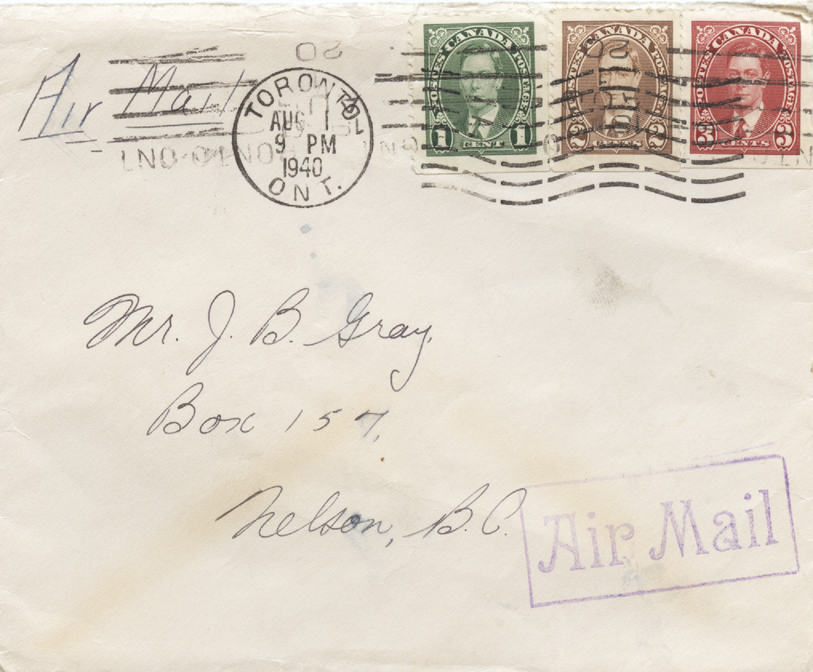 Air Mail
TORONTO
AUG 1
9 PM
1940
ONT.
POSTES CANADA POSTAGE
1 CENT 1
POSTES CANADA POSTAGE
2 CENTS 2
POSTES CANADA POSTAGE
3 CENTS 3
Mr. J. B. Gray,
Box 157,
Nelson, B.C.
Air Mail